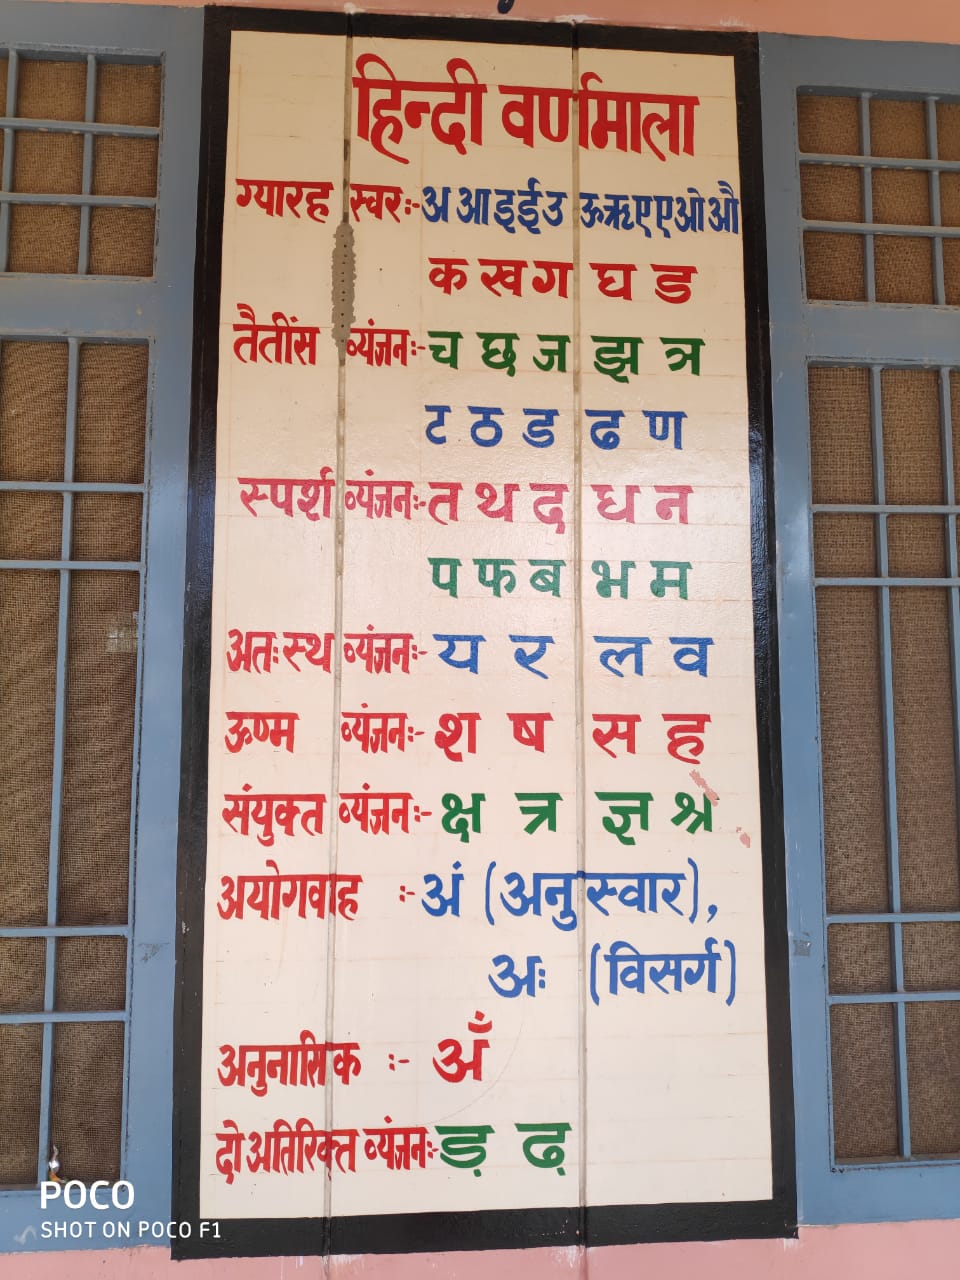 हिन्दी वर्णमाला
ग्यारह स्वरः- अ आ इ ई उ ऊ ऋ ए ए ओ औ
क ख ग घ ड
तैतींस व्यंजनः- च छ ज झ त्र
ट ठ ड ढ ण
स्पर्श व्यंजनः- त थ द ध न
प फ ब भ म
अतःस्थ व्यंजनः- य र ल व
ऊष्म व्यंजनः- श ष स ह
संयुक्त व्यंजनः- क्ष त्र ज्ञ श्र
अयोगवाह :- अं (अनुस्वार),
अः (विसर्ग)
अनुनासिक :- अँ
दो अतिरिक्त व्यंजनः- ड़ ढ़
POCO
SHOT ON POCO F1